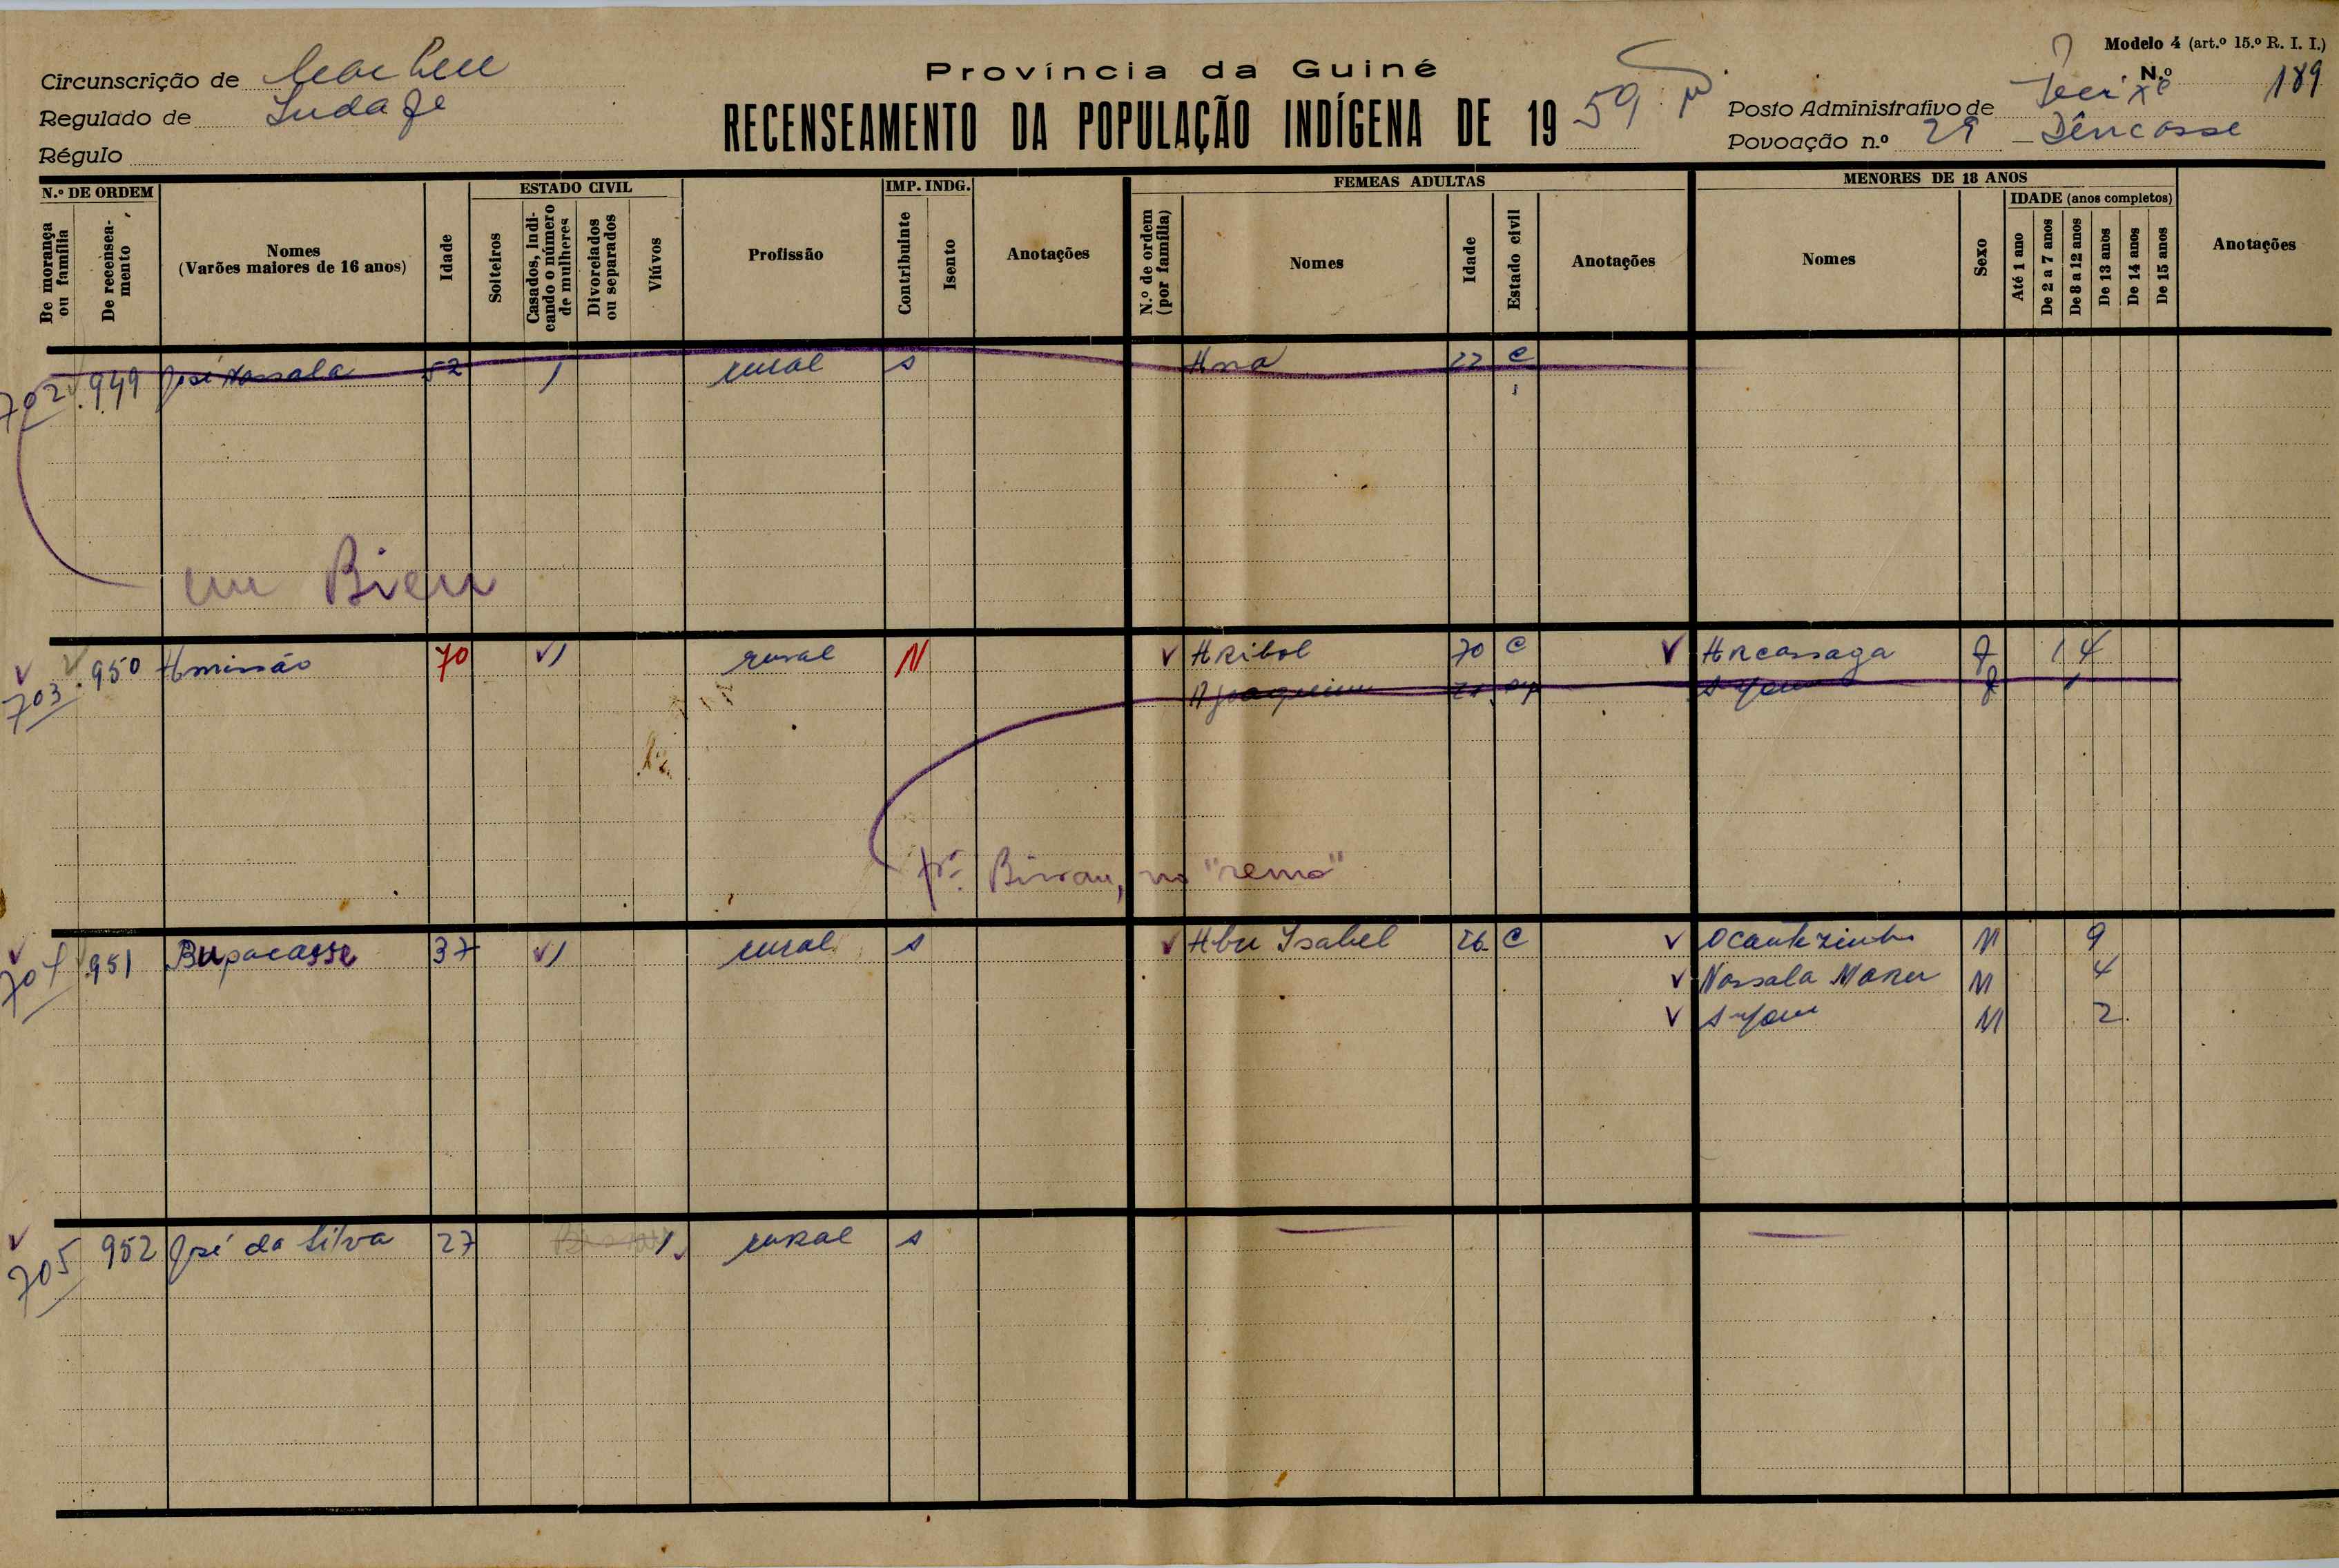 Modelo 4 (art.º 15.º R. I. I.)
Província da Guiné
N.º 189
Circunscrição de Cacheu
RECENSEAMENTO DA POPULAÇÃO INDÍGENA DE 19 59
Posto Administrativo de
Regulado de
Povoação n.º 29 — Dêncasse
Régulo
N.º DE ORDEM
ESTADO CIVIL
IMP. INDG.
FEMEAS ADULTAS
MENORES DE 18 ANOS
IDADE (anos completos)
De morança ou família
De recenseamento
Nomes
(Varões maiores de 16 anos)
Idade
Solteiros
Casados, indicando o número de mulheres
Divorciados ou separados
Viúvos
Profissão
Contribuinte
Isento
Anotações
N.º de ordem (por família)
Nomes
Idade
Estado civil
Anotações
Nomes
Sexo
Até 1 ano
De 2 a 7 anos
De 8 a 12 anos
De 13 anos
De 14 anos
De 15 anos
Anotações
702 949 José Nassala 52 1 rural s 22 C
em
703 950 70 1 rural N 70 C 14
Bissau, no "remo"
704 951 Bupacasse 37 1 rural s Isabel 26 C M 9
Nassala M 4
M 2
705 952 José da Silva 27 1 rural s